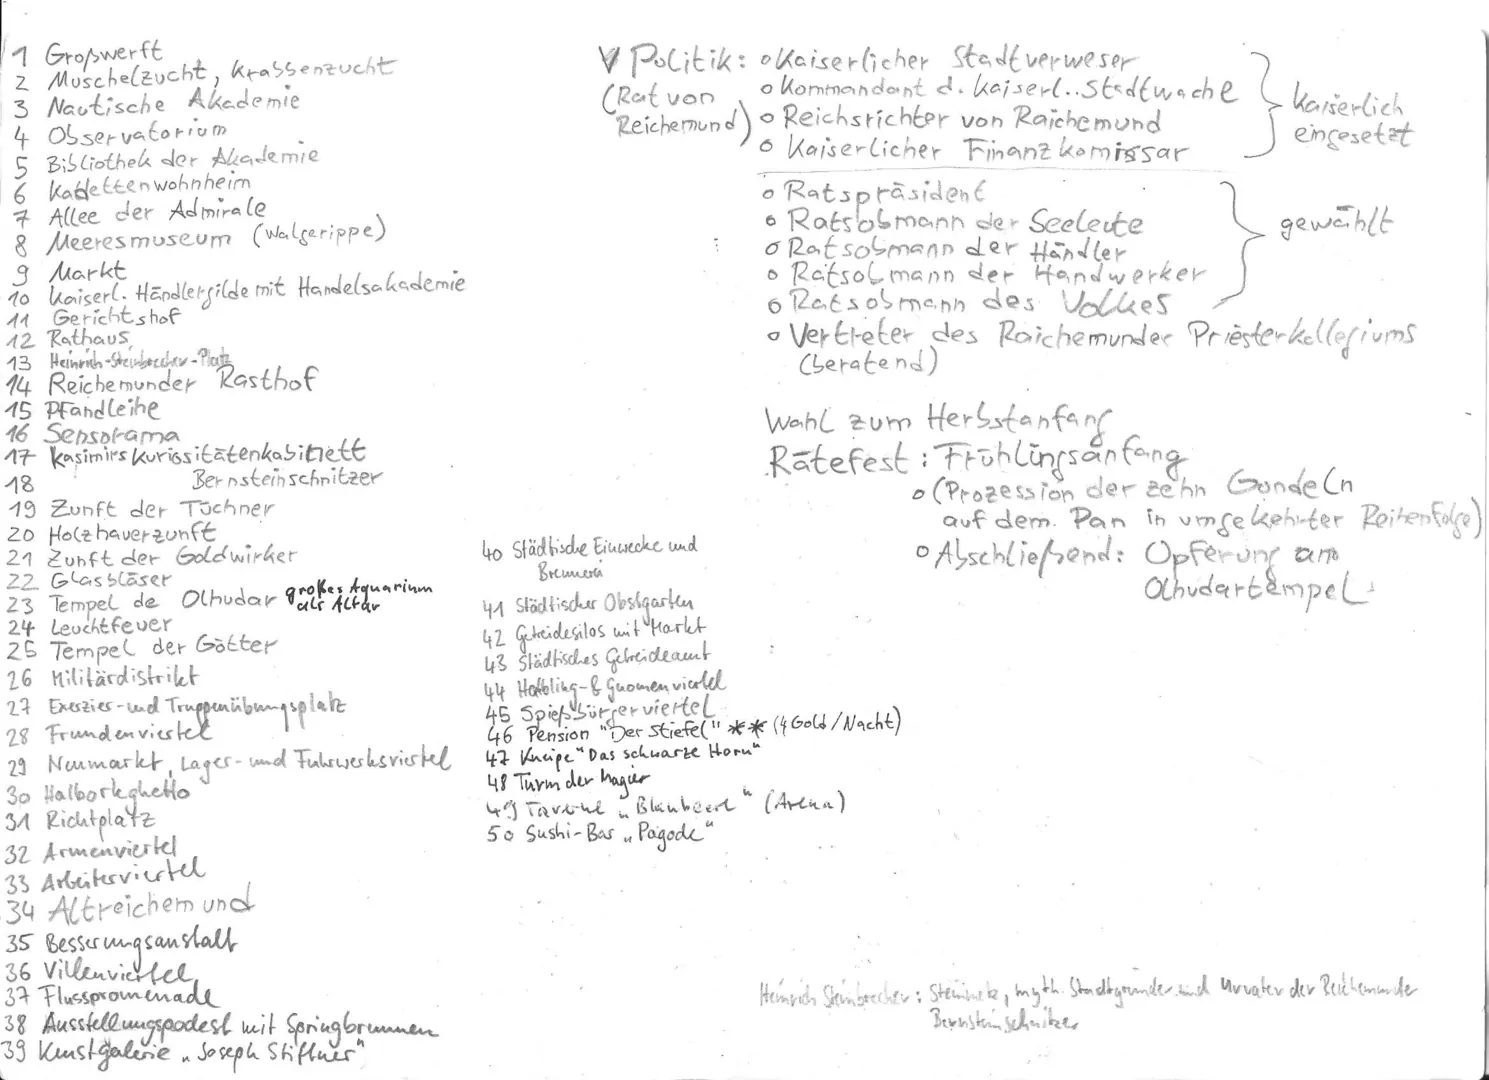 1 Großwerft
2 Muschelzucht, Krabbenzucht
3 Nautische Akademie
4 Observatorium
5 Bibliothek der Akademie
6 Kadettenwohnheim
7 Allee der Admirale
8 Meeresmuseum (Walgerippe)
9 Markt
10 Kaiserl. Händlergilde mit Handelsakademie
11 Gerichtshof
12 Rathaus,
13 Heinrich-Steinbrecher-Platz
14 Reichemunder Rasthof
15 Pfandleihe
16 Sensorama
17 Kasimirs Kuriositätenkabinett
18 Bernsteinschnitzer
19 Zunft der Tuchner
20 Holzhauerzunft
21 Zunft der Goldwirker
22 Glasbläser
23 Tempel de Olhudar großes Aquarium
als Altar
24 Leuchtfeuer
25 Tempel der Götter
26 Militärdistrikt
27 Exerzier- und Truppenübungsplatz
28 Fremdenviertel
29 Neumarkt, Lager- und Fuhrwerksviertel
30 Halborkghetto
31 Richtplatz
32 Armenviertel
33 Arbeiterviertel
34 Altreichemund
35 Besserungsanstalt
36 Villenviertel
37 Flusspromenade
38 Ausstellungspodest mit Springbrunnen
39 Kunstgalerie „Joseph Stiftner"
40 Städtische Einwecke und
Brennerei
41 Städtischer Obstgarten
42 Getreidesilos mit Markt
43 Städtisches Getreideamt
44 Halbling- & Gnomenviertel
45 Spießbürgerviertel
46 Pension "Der Stiefel" ** (4 Gold/Nacht)
47 Kneipe "Das schwarze Horn"
48 Turm der Magier
49 Taverne „Blaubeere" (Arena)
50 Sushi-Bar „Pagode"
Politik: o Kaiserlicher Stadtverweser
(Rat von
Reichemund)
o Kommandant d. kaiserl. Stadtwache
o Reichsrichter von Raichemund
o Kaiserlicher Finanzkomissar
Kaiserlich
eingesetzt
o Ratspräsident
o Ratsobmann der Seeleute
o Ratsobmann der Händler
o Ratsobmann der Handwerker
o Ratsobmann des Volkes
gewählt
o Vertreter des Raichemunder Priesterkollegiums
(beratend)
Wahl zum Herbstanfang
Rätefest: Frühlingsanfang
o (Prozession der zehn Gondeln
auf dem Pan in umgekehrter Reihenfolge)
o Abschließend: Opferung am
Olhudartempel
Heinrich Steinbrecher: Steinmetz, myth. Stadtgründer und Urvater der Reichemunder
Bernsteinschnitzer